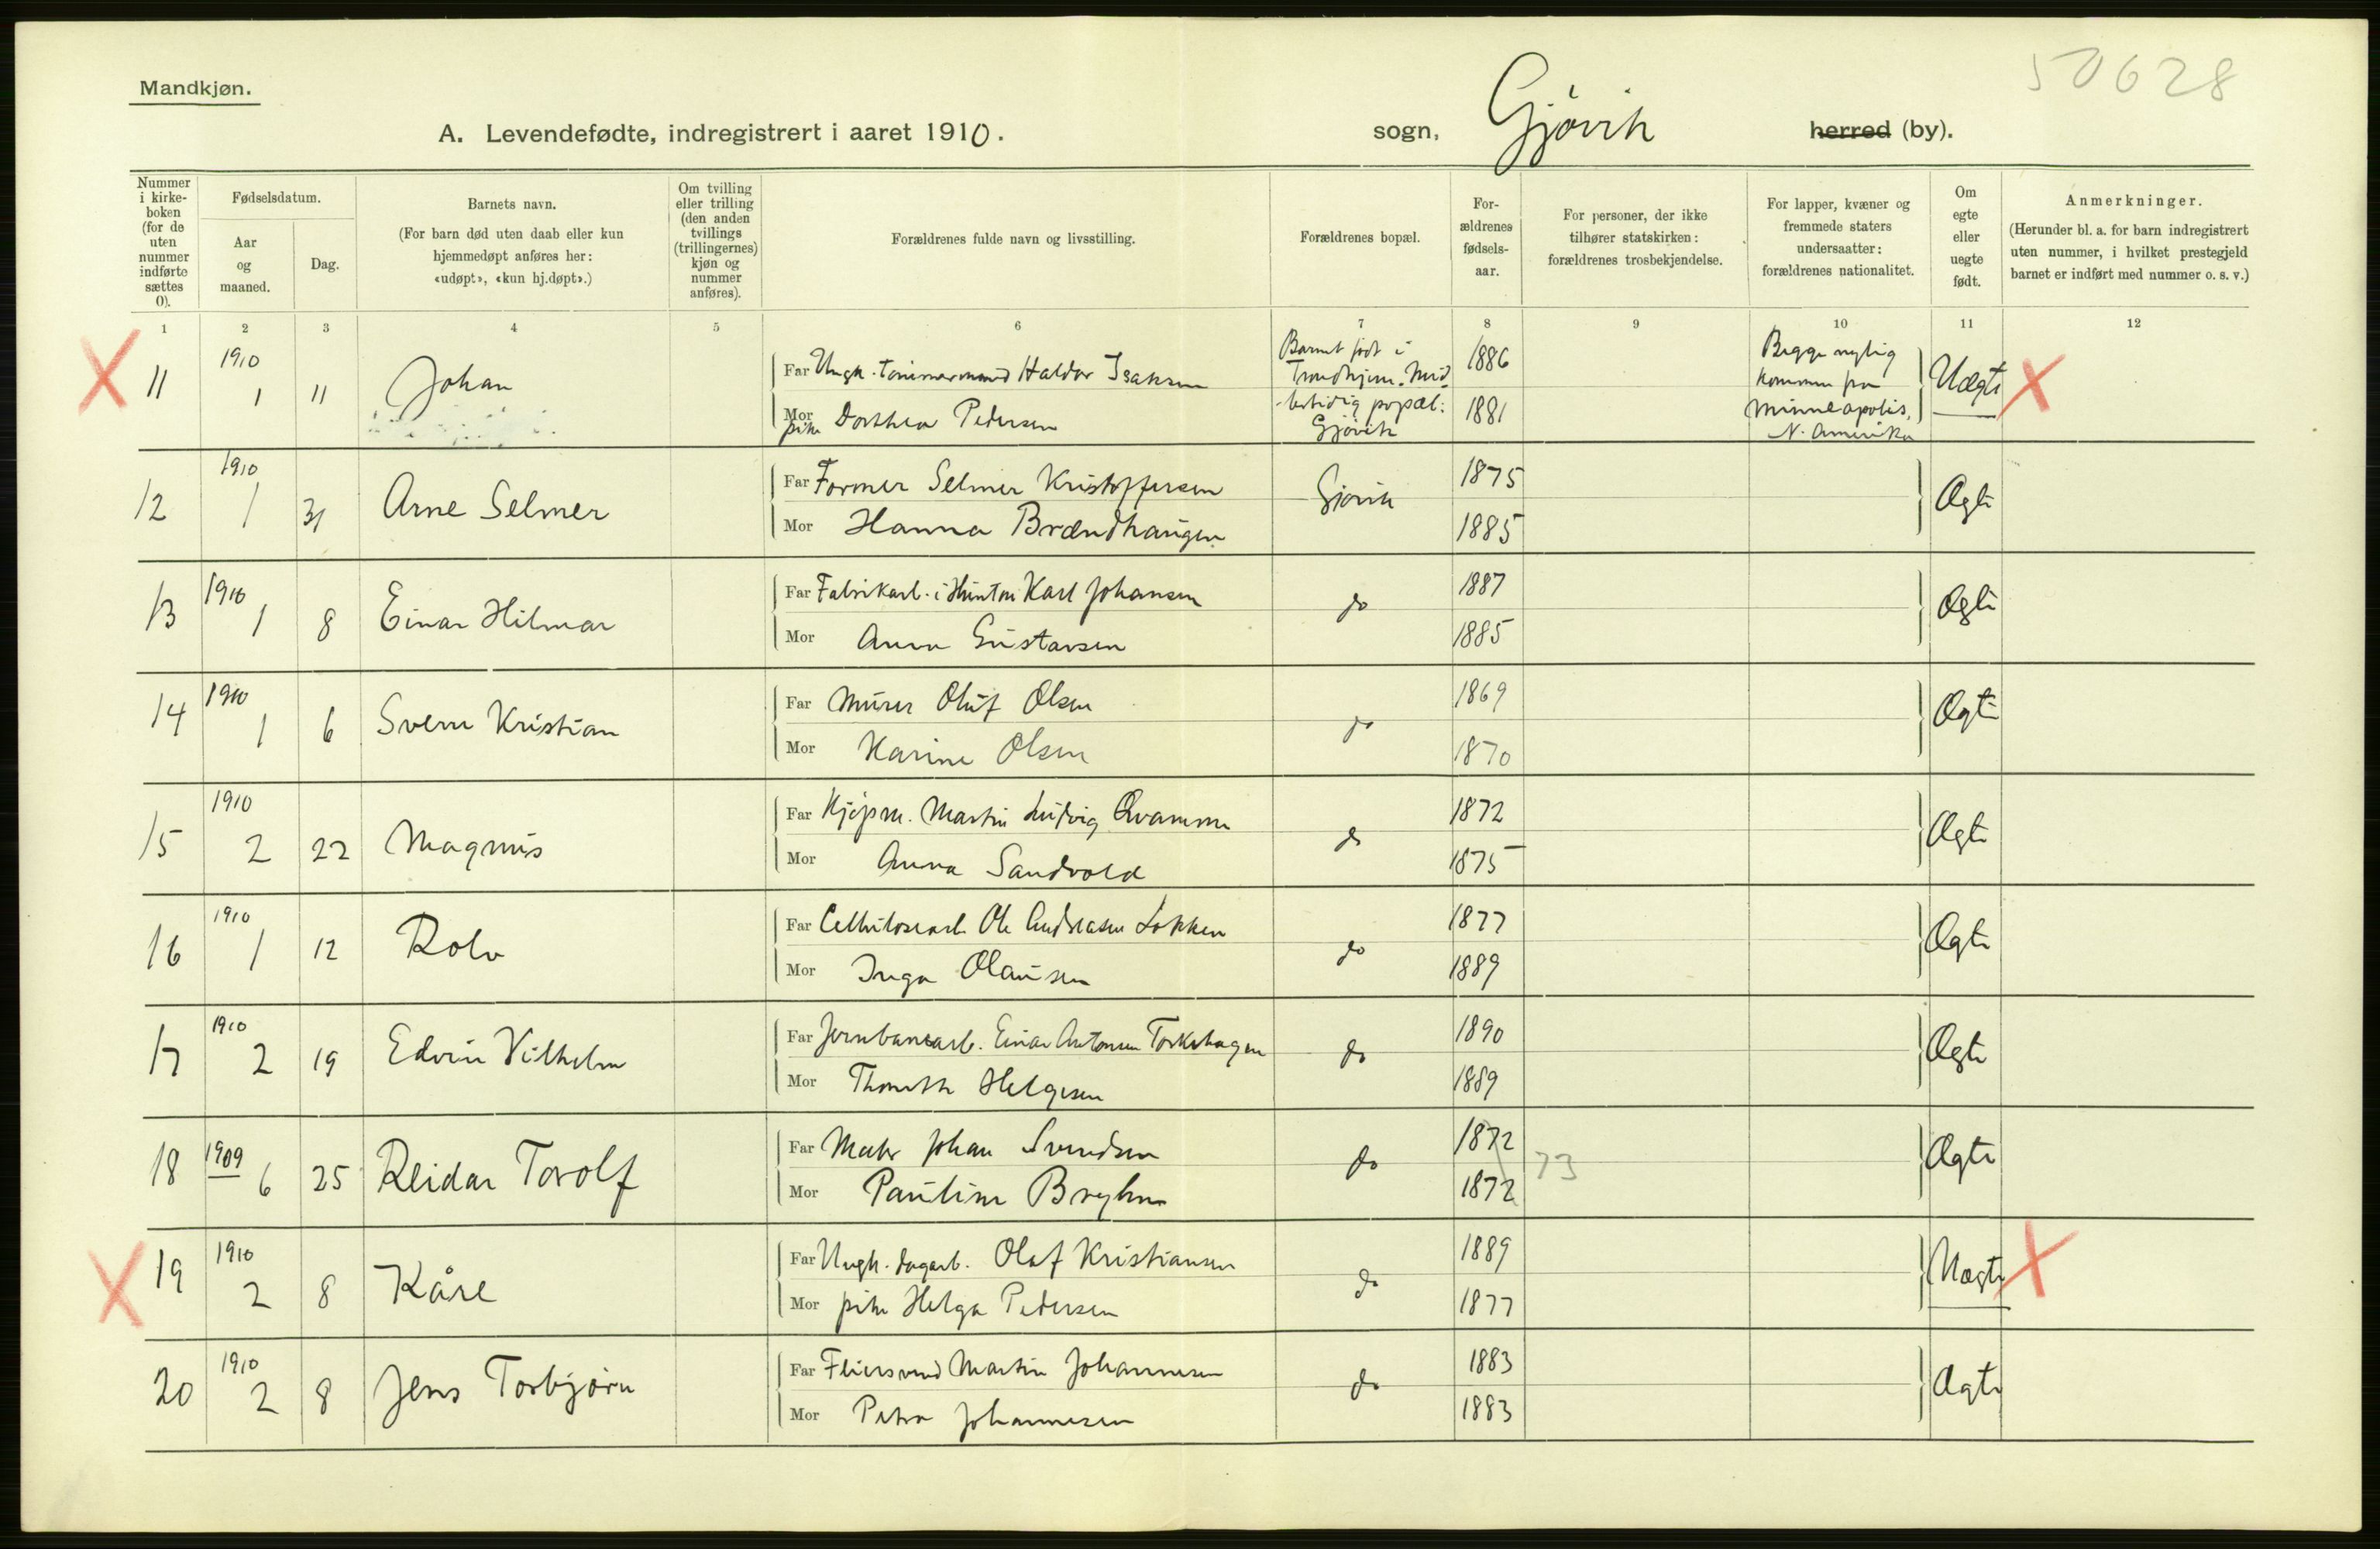 50628
Mandkjøn.
A. Levendefødte, indregistrert i aaret 1910.
sogn, Gjøvik herred (by).
Nummer i kirke-boken (for de uten nummer indførte sættes 0).
Fødselsdatum.
Aar og maaned.
Dag.
Barnets navn.
(For barn død uten daab eller kun hjemmedøpt anføres her: «udøpt», «kun hj.døpt».)
Om tvilling eller trilling (den anden tvillings (trillingernes) kjøn og nummer anføres).
Forældrenes fulde navn og livsstilling.
Forældrenes bopæl.
For-ældrenes fødsels-aar.
For personer, der ikke tilhører statskirken: forældrenes trosbekjendelse.
For lapper, kvæner og fremmede staters undersaatter: forældrenes nationalitet.
Om egte eller uegte født.
Anmerkninger.
(Herunder bl. a. for barn indregistrert uten nummer, i hvilket prestegjeld barnet er indført med nummer o. s. v.)
1 2 3 4 5 6 7 8 9 10 11 12
11 1910 1 11 Johan
Far Ungk. tømmermand Haldor Isaksen
Mor pike Dorthea Pedersen
Barnet født i Trondhjem. Mid-lertidig popæl: Gjøvik
1886
1881
Begge nylig kommen fra Minneapolis, N. Amerika
Uægte
12 1910 1 31 Arne Selmer
Far Former Selmer Kristoffersen
Mor Hanna Brændhaugen
Gjøvik
1875
1885
Ægte
13 1910 1 8 Einar Hilmar
Far Fabrikarb. i Hunton Karl Johansen
Mor Anna Gustavsen
do
1887
1885
Ægte
14 1910 1 6 Sverre Kristian
Far Murer Oluf Olsen
Mor Karine Olsen
do
1869
1870
Ægte
15 1910 2 22 Magnus
Far Kjøpm. Martin Ludvig Qvamme
Mor Anna Sandvold
do
1872
1875
Ægte
16 1910 1 12 Rolv
Far Cellulosearb. Ole Andreasen Løkken
Mor Inga Olausen
do
1877
1889
Ægte
17 1910 2 19 Edvin Vilhelm
Far Jernbanearb. Einar Antonsen Torkehagen
Mor Helgesen
do
1890
1889
Ægte
18 1909 6 25 Reidar Torolf
Far Maler Johan Svendsen
Mor Pauline Bryhn
do
1872
1872
73
Ægte
19 1910 2 8 Kåre
Far Ungk. dagarb. Olaf Kristiansen
Mor pike Helga Pedersen
do
1889
1877
Uægte
20 1910 2 8 Jens Torbjørn
Far Martin Johannesen
Mor Petra Johannesen
do
1883
1883
Ægte